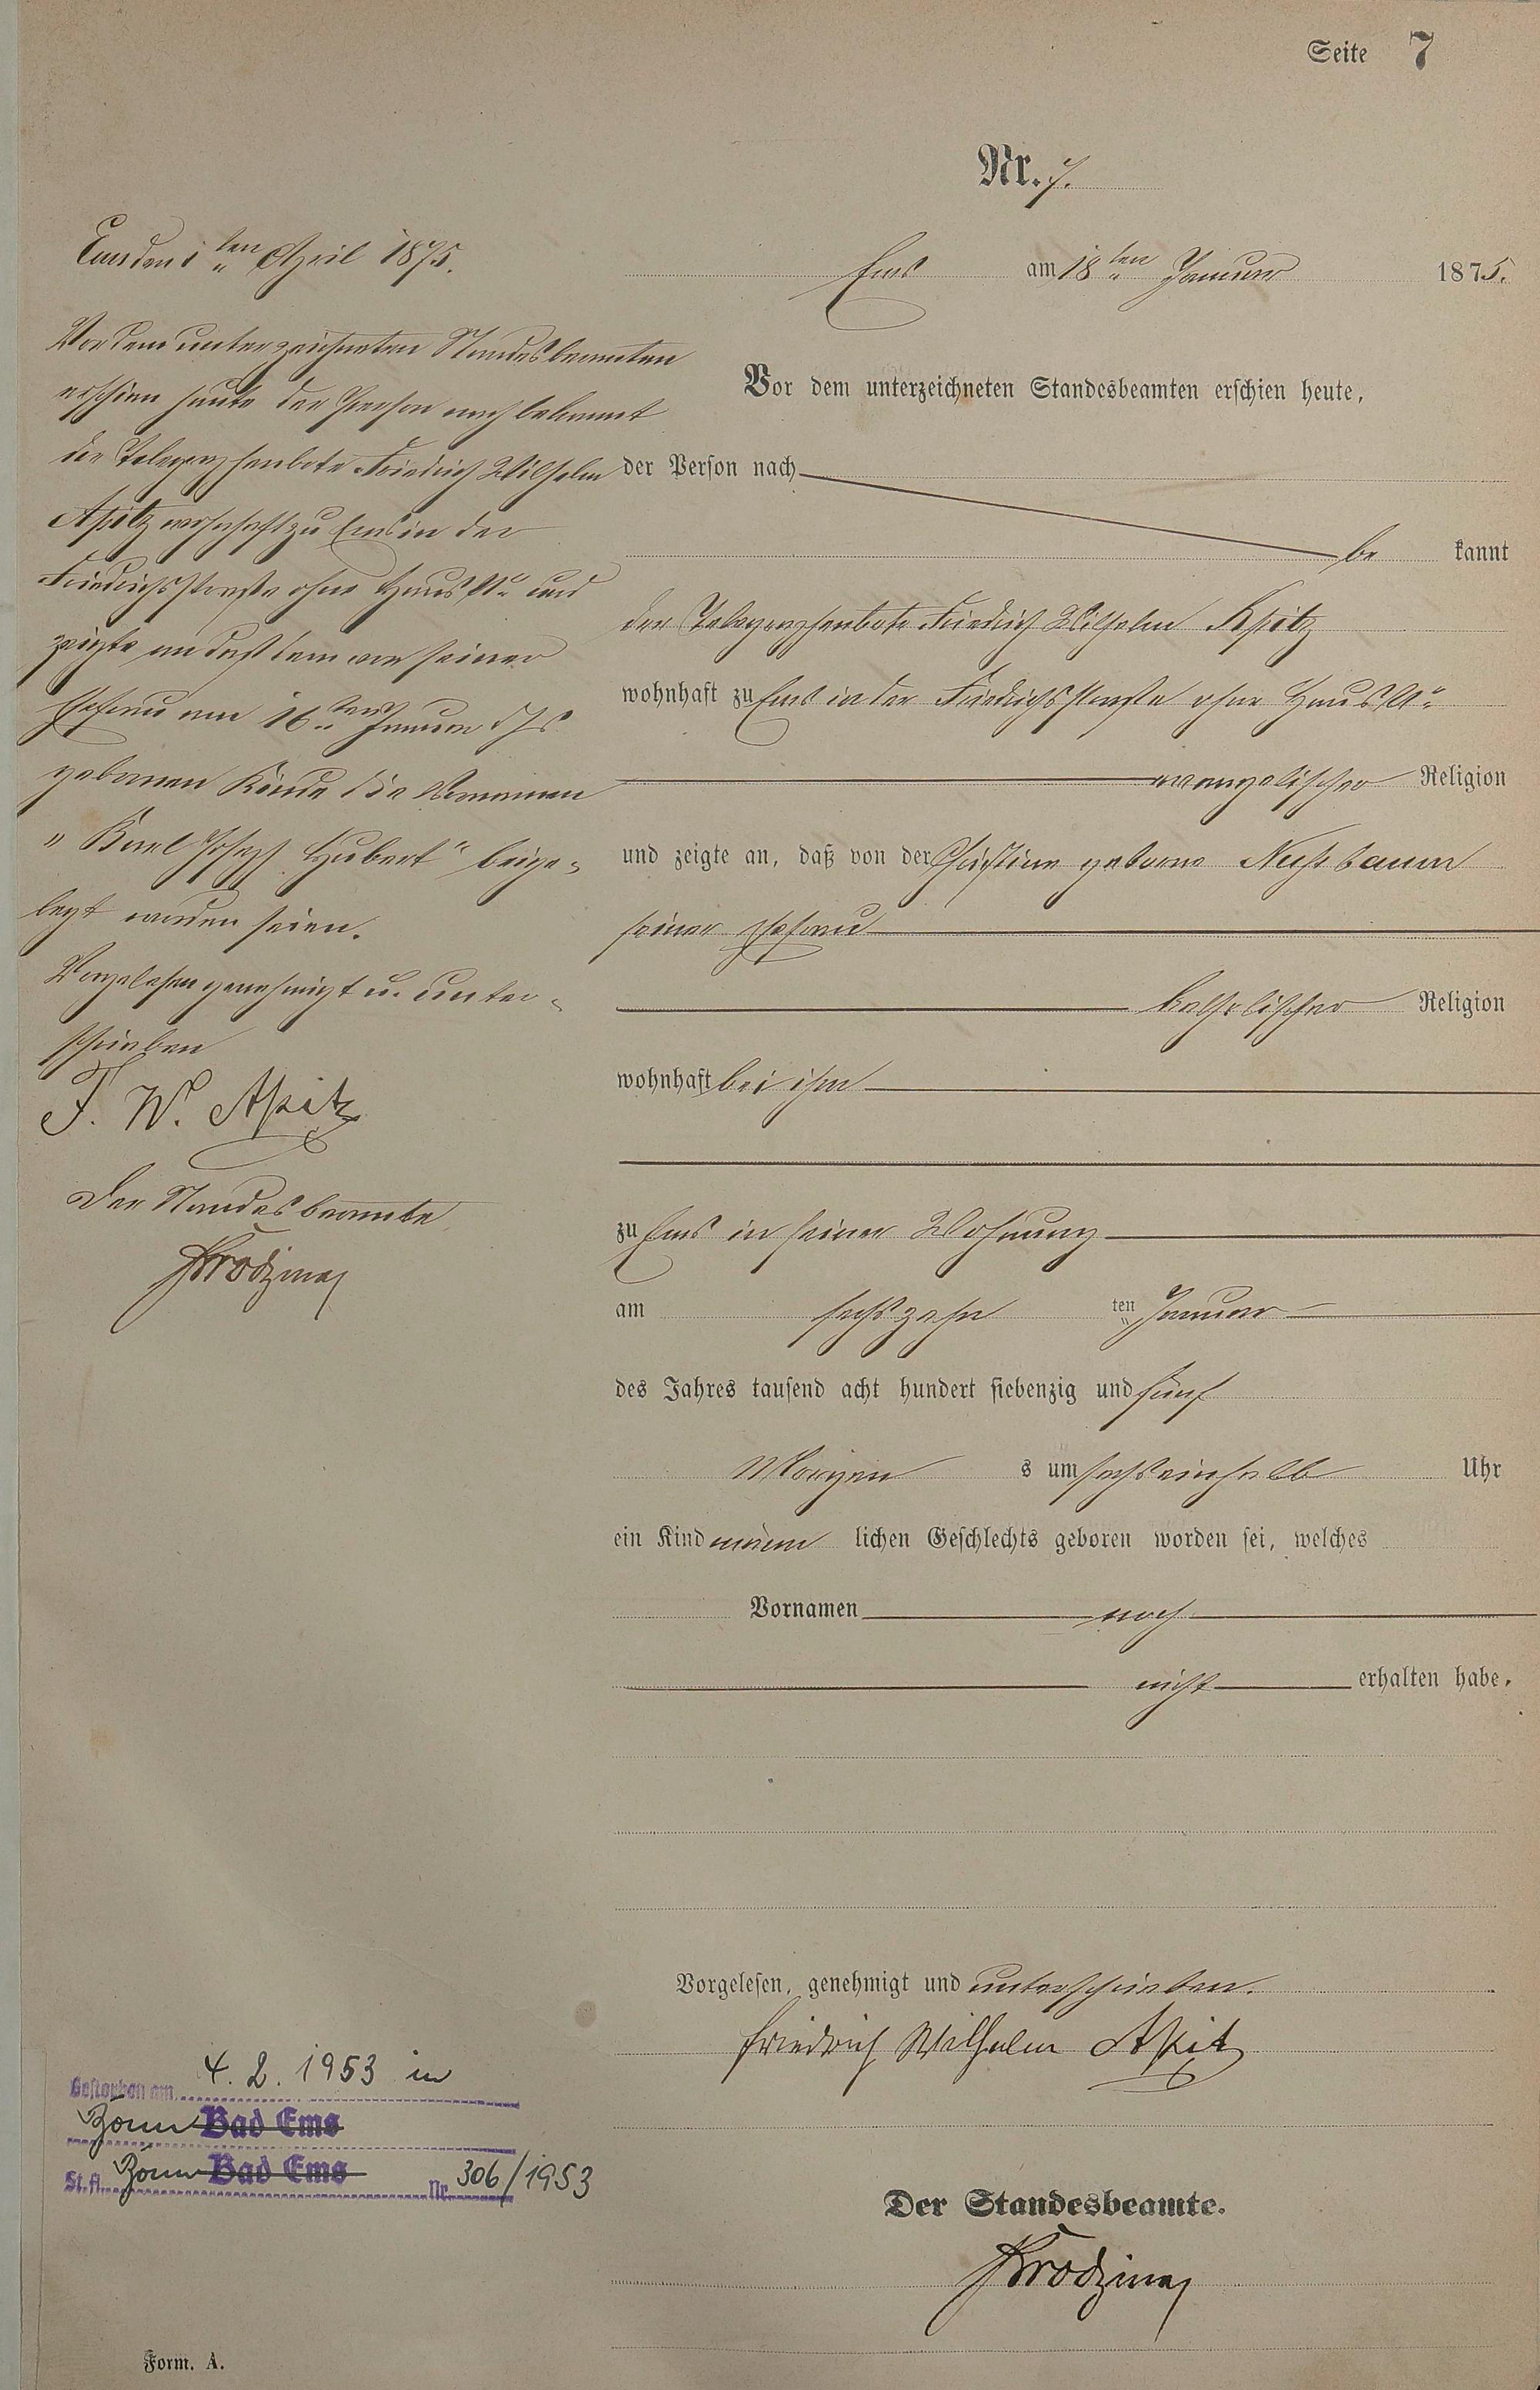 Seite 7
Nr. 7.
Ems am 18ten Januar 1875.
Vor dem unterzeichneten Standesbeamten erschien heute,
der Person nach
be kannt
der Telegraphenbote Friedrich Wilhelm Apitz
wohnhaft zu Ems in der Friedrichsstraße ohne Haus No
evangelischer Religion
und zeigte an, daß von der Christine geborne Nußbaum
seiner Ehefrau
katholischer Religion
wohnhaft bei ihm
zu Ems in seiner Wohnung
am sechszehn ten Januar
des Jahres tausend acht hundert siebenzig und fünf
Morgen s um sechseinhalb Uhr
ein Kind männ lichen Geschlechts geboren worden sei, welches
Vornamen noch
nicht erhalten habe.
Vorgelesen, genehmigt und unterschrieben.
Friedrich Wilhelm Apitz
Der Standesbeamte.
Ems den 1ten April 1875.
Vor dem unterzeichneten Standesbeamten
erschien heute der Person nach bekannt
der Telegraphenbote Friedrich Wilhelm
Apitz wohnhaft zu Ems in der
Friedrichsstraße ohne Haus No und
zeigte an daß dem von seiner
Ehefrau am 16ten Januar d Js
gebornen Kinde die Vornamen
"Karl Joseph Hubert" beige-
legt worden seien.
Vorgelesen genehmigt u. unter-
schrieben
F. W. Apitz
Der Standesbeamte
Gestorben am 4. 2. 1953 in
Bonn Bad Ems
St. A. Bonn Bad Ems Nr. 306/1953
Form. A.